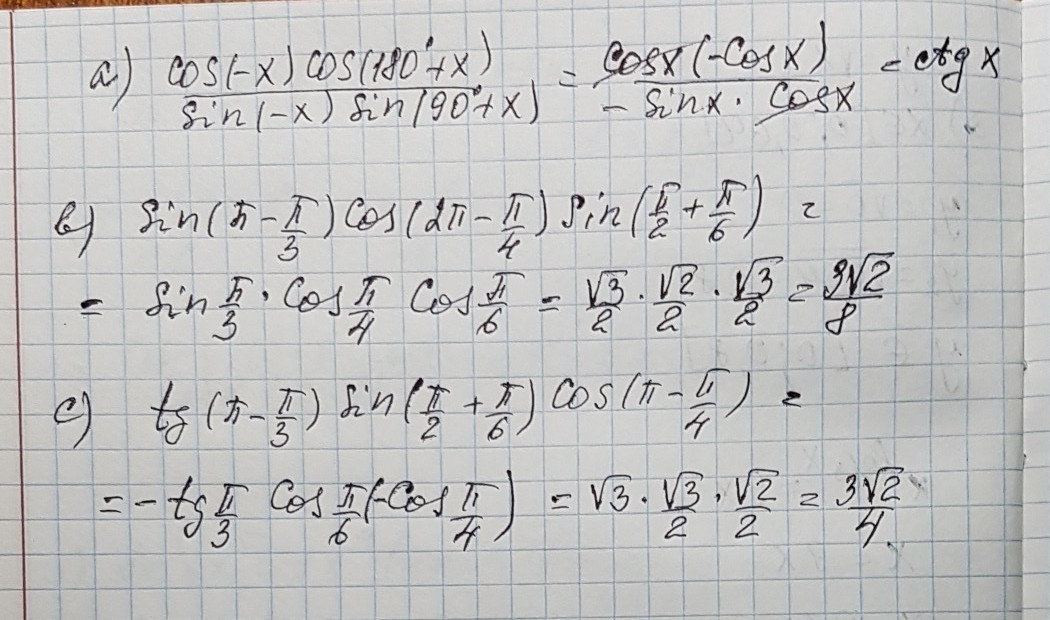 a) cos(-x) cos(180°+x) / sin(-x) sin(90°+x) = cosx(-cosx) / - sinx · cosx = ctg x
b) sin(π - π/3) cos(2π - π/4) sin(π/2 + π/6) =
= sin π/3 · cos π/4 cos π/6 = √3/2 · √2/2 · √3/2 = 3√2/8
c) tg(π - π/3) sin(π/2 + π/6) cos(π - π/4) =
= - tg π/3 cos π/6 (-cos π/4) = √3 · √3/2 · √2/2 = 3√2/4.